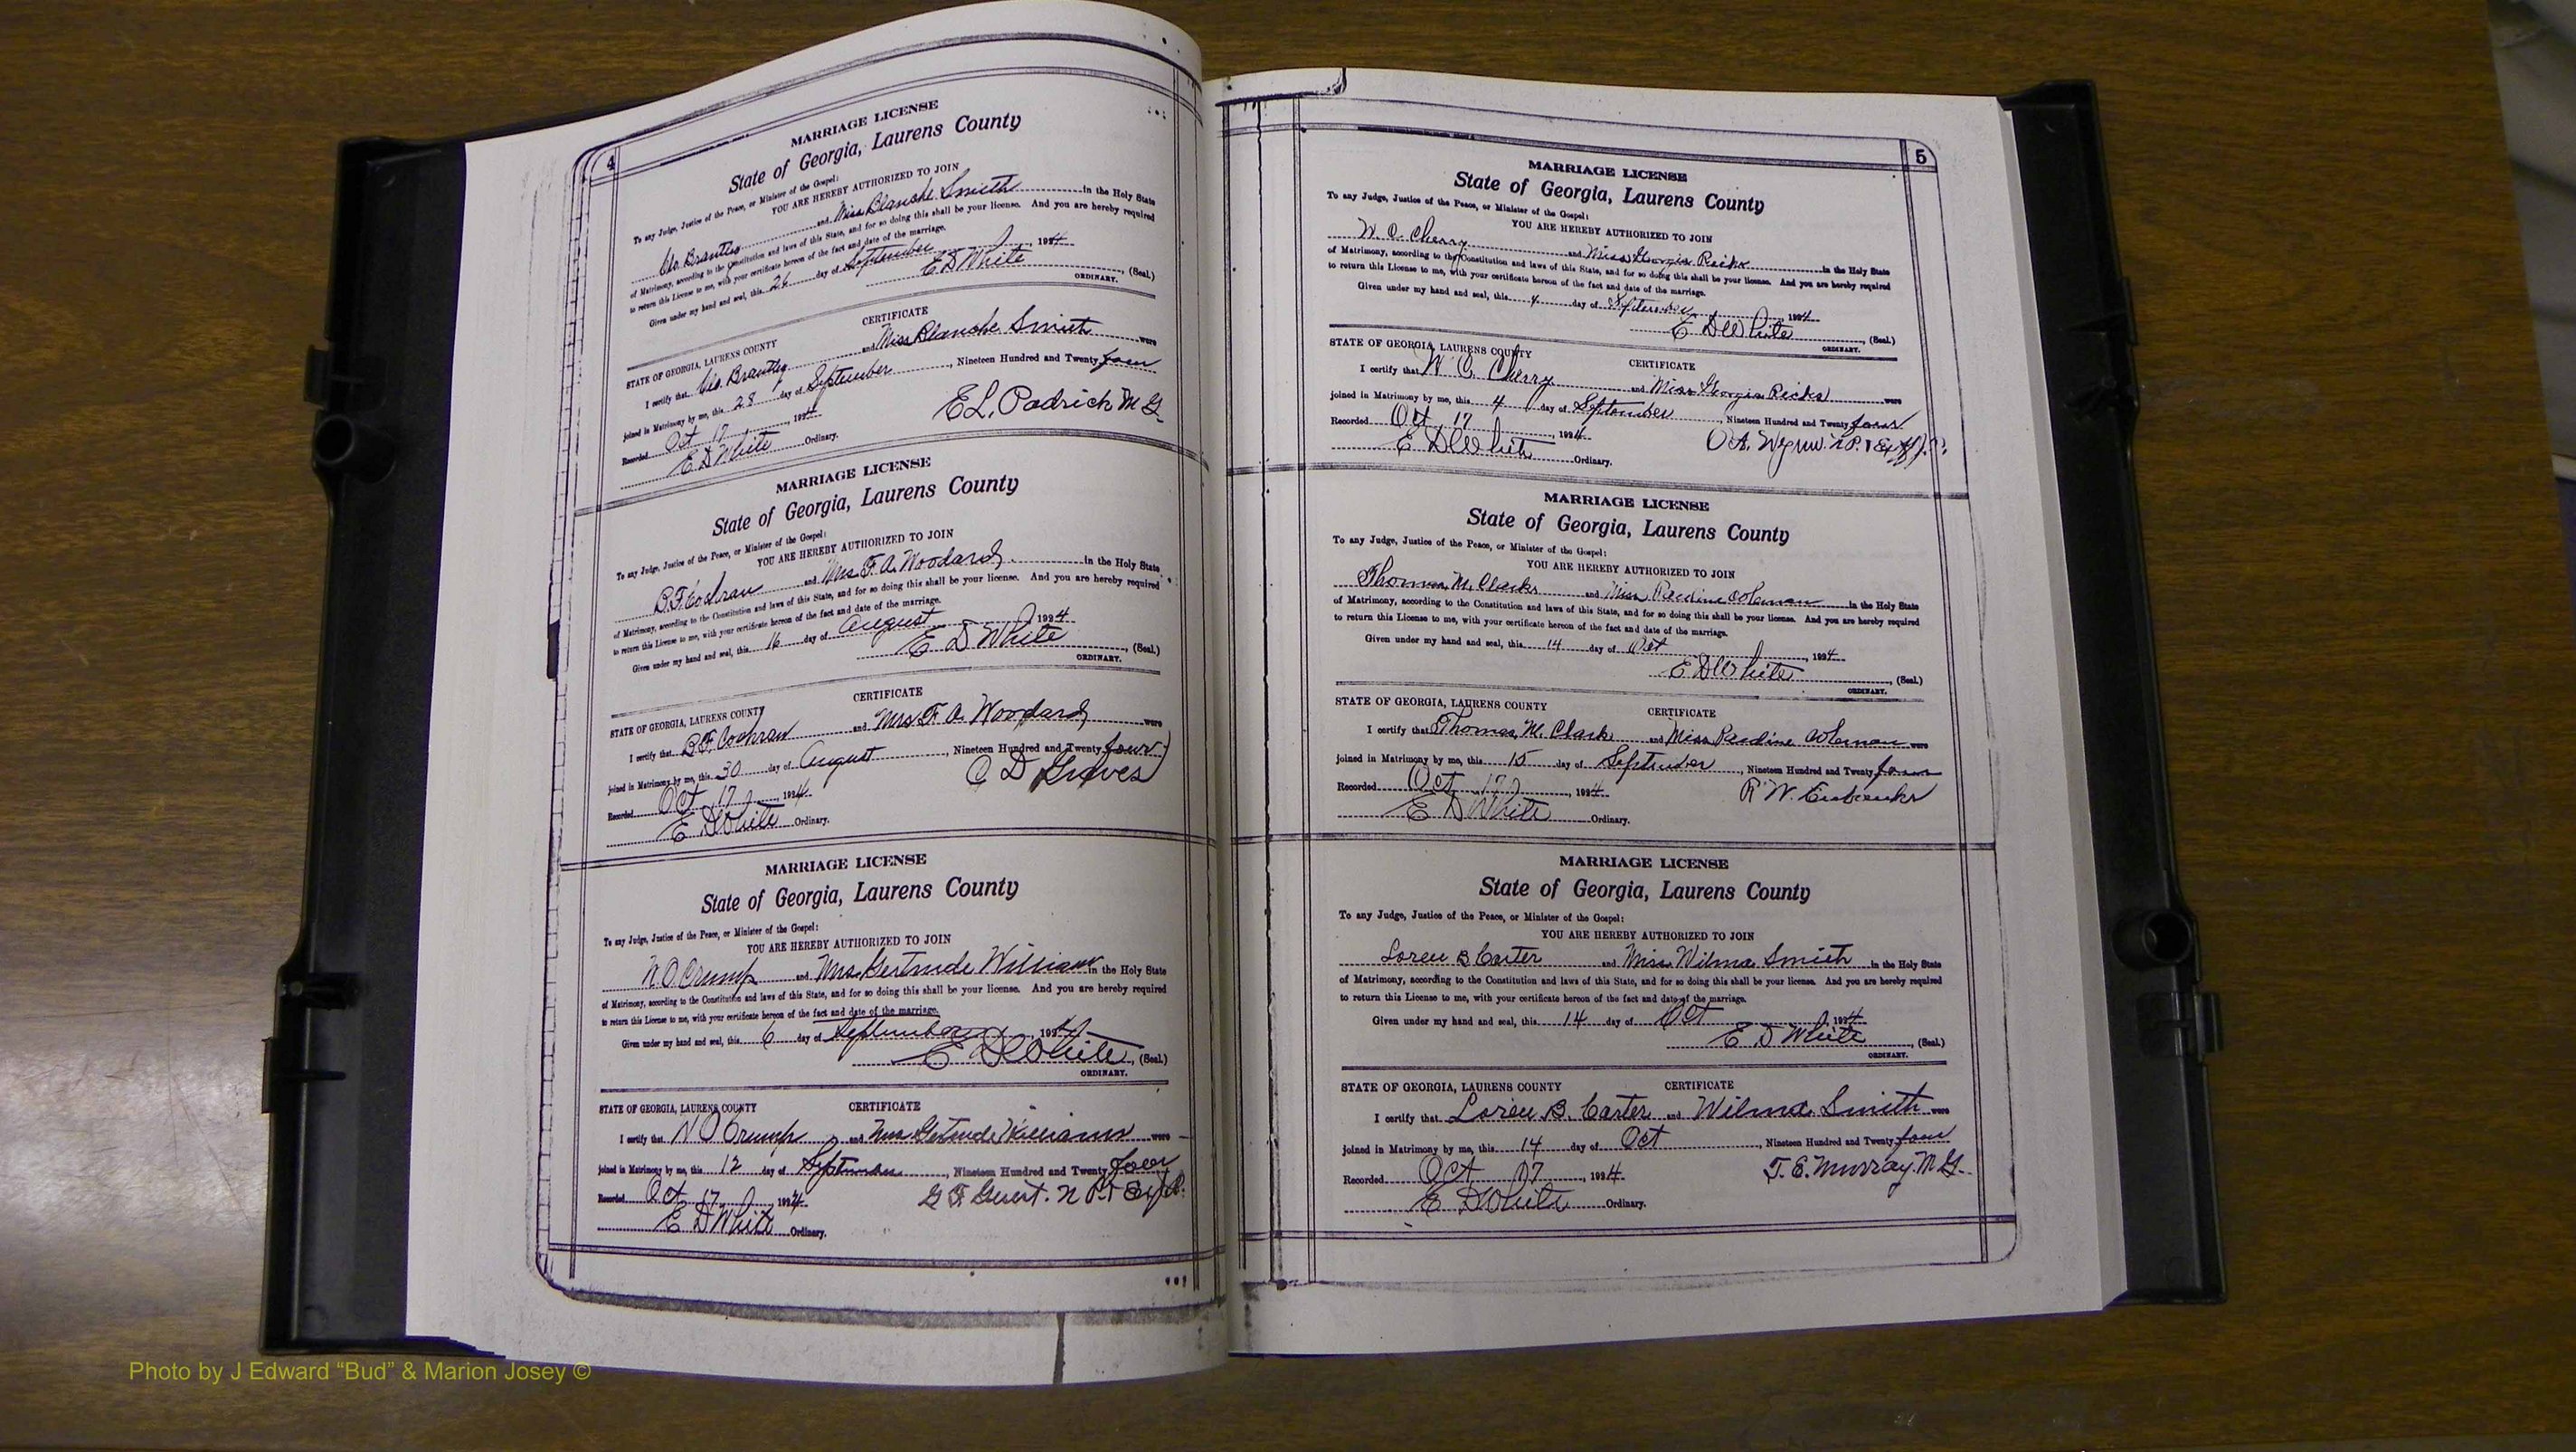 4
MARRIAGE LICENSE
State of Georgia, Laurens County
To any Judge, Justice of the Peace, or Minister of the Gospel:
YOU ARE HEREBY AUTHORIZED TO JOIN
Brantley and Miss Blanche Smith in the Holy State
of Matrimony, according to the Constitution and laws of this State, and for so doing this shall be your license. And you are hereby required
to return this License to me, with your certificate hereon of the fact and date of the marriage.
Given under my hand and seal, this 26 day of September, 1924
E D White, (Seal.)
ORDINARY.
STATE OF GEORGIA, LAURENS COUNTY CERTIFICATE
I certify that Brantley and Miss Blanche Smith were
joined in Matrimony by me, this 28 day of September, Nineteen Hundred and Twenty four
Recorded Oct 17, 1924 E L. Padrick M G
E D White Ordinary.
MARRIAGE LICENSE
State of Georgia, Laurens County
To any Judge, Justice of the Peace, or Minister of the Gospel:
YOU ARE HEREBY AUTHORIZED TO JOIN
B. F. Cochran and Mrs. F. A. Woodard in the Holy State
of Matrimony, according to the Constitution and laws of this State, and for so doing this shall be your license. And you are hereby required
to return this License to me, with your certificate hereon of the fact and date of the marriage.
Given under my hand and seal, this 16 day of August 1924
E D White, (Seal.)
ORDINARY.
STATE OF GEORGIA, LAURENS COUNTY CERTIFICATE
I certify that B. F. Cochran and Mrs F A. Woodard were
joined in Matrimony by me, this 30 day of August, Nineteen Hundred and Twenty four
Recorded Oct 17, 1924 C D Graves
E D White Ordinary.
MARRIAGE LICENSE
State of Georgia, Laurens County
To any Judge, Justice of the Peace, or Minister of the Gospel:
YOU ARE HEREBY AUTHORIZED TO JOIN
N. O. Crump and Mrs. Gertrude Williams in the Holy State
of Matrimony, according to the Constitution and laws of this State, and for so doing this shall be your license. And you are hereby required
to return this License to me, with your certificate hereon of the fact and date of the marriage.
Given under my hand and seal, this 6 day of September, 1924
E D White, (Seal.)
ORDINARY.
STATE OF GEORGIA, LAURENS COUNTY CERTIFICATE
I certify that N O Crump and Mrs Gertrude Williams were
joined in Matrimony by me, this 12 day of September, Nineteen Hundred and Twenty four
Recorded Oct 17, 1924 G F N P
E D White Ordinary.
5
MARRIAGE LICENSE
State of Georgia, Laurens County
To any Judge, Justice of the Peace, or Minister of the Gospel:
YOU ARE HEREBY AUTHORIZED TO JOIN
W. C. Cherry and Miss Georgia Ricks in the Holy State
of Matrimony, according to the Constitution and laws of this State, and for so doing this shall be your license. And you are hereby required
to return this License to me, with your certificate hereon of the fact and date of the marriage.
Given under my hand and seal, this 4 day of September, 1924
E D White, (Seal.)
ORDINARY.
STATE OF GEORGIA, LAURENS COUNTY CERTIFICATE
I certify that W C. Cherry and Miss Georgia Ricks were
joined in Matrimony by me, this 4 day of September, Nineteen Hundred and Twenty four
Recorded Oct 17, 1924
E D White Ordinary.
MARRIAGE LICENSE
State of Georgia, Laurens County
To any Judge, Justice of the Peace, or Minister of the Gospel:
YOU ARE HEREBY AUTHORIZED TO JOIN
Thomas M. Clark and Miss Pauline Coleman in the Holy State
of Matrimony, according to the Constitution and laws of this State, and for so doing this shall be your license. And you are hereby required
to return this License to me, with your certificate hereon of the fact and date of the marriage.
Given under my hand and seal, this 14 day of Oct, 1924
E D White (Seal.)
ORDINARY.
STATE OF GEORGIA, LAURENS COUNTY CERTIFICATE
I certify that Thomas M. Clark and Miss Pauline Coleman were
joined in Matrimony by me, this 15 day of September, Nineteen Hundred and Twenty four
Recorded Oct 17, 1924 R W. Eubanks
E D White Ordinary.
MARRIAGE LICENSE
State of Georgia, Laurens County
To any Judge, Justice of the Peace, or Minister of the Gospel:
YOU ARE HEREBY AUTHORIZED TO JOIN
Loren B Carter and Miss Wilma Smith in the Holy State
of Matrimony, according to the Constitution and laws of this State, and for so doing this shall be your license. And you are hereby required
to return this License to me, with your certificate hereon of the fact and date of the marriage.
Given under my hand and seal, this 14 day of Oct, 1924
E D White, (Seal.)
ORDINARY.
STATE OF GEORGIA, LAURENS COUNTY CERTIFICATE
I certify that Loren B. Carter and Wilma Smith were
joined in Matrimony by me, this 14 day of Oct, Nineteen Hundred and Twenty four
Recorded Oct 17, 1924 T. E. Murray. M G.
E D White Ordinary.
Photo by J Edward “Bud” & Marion Josey ©